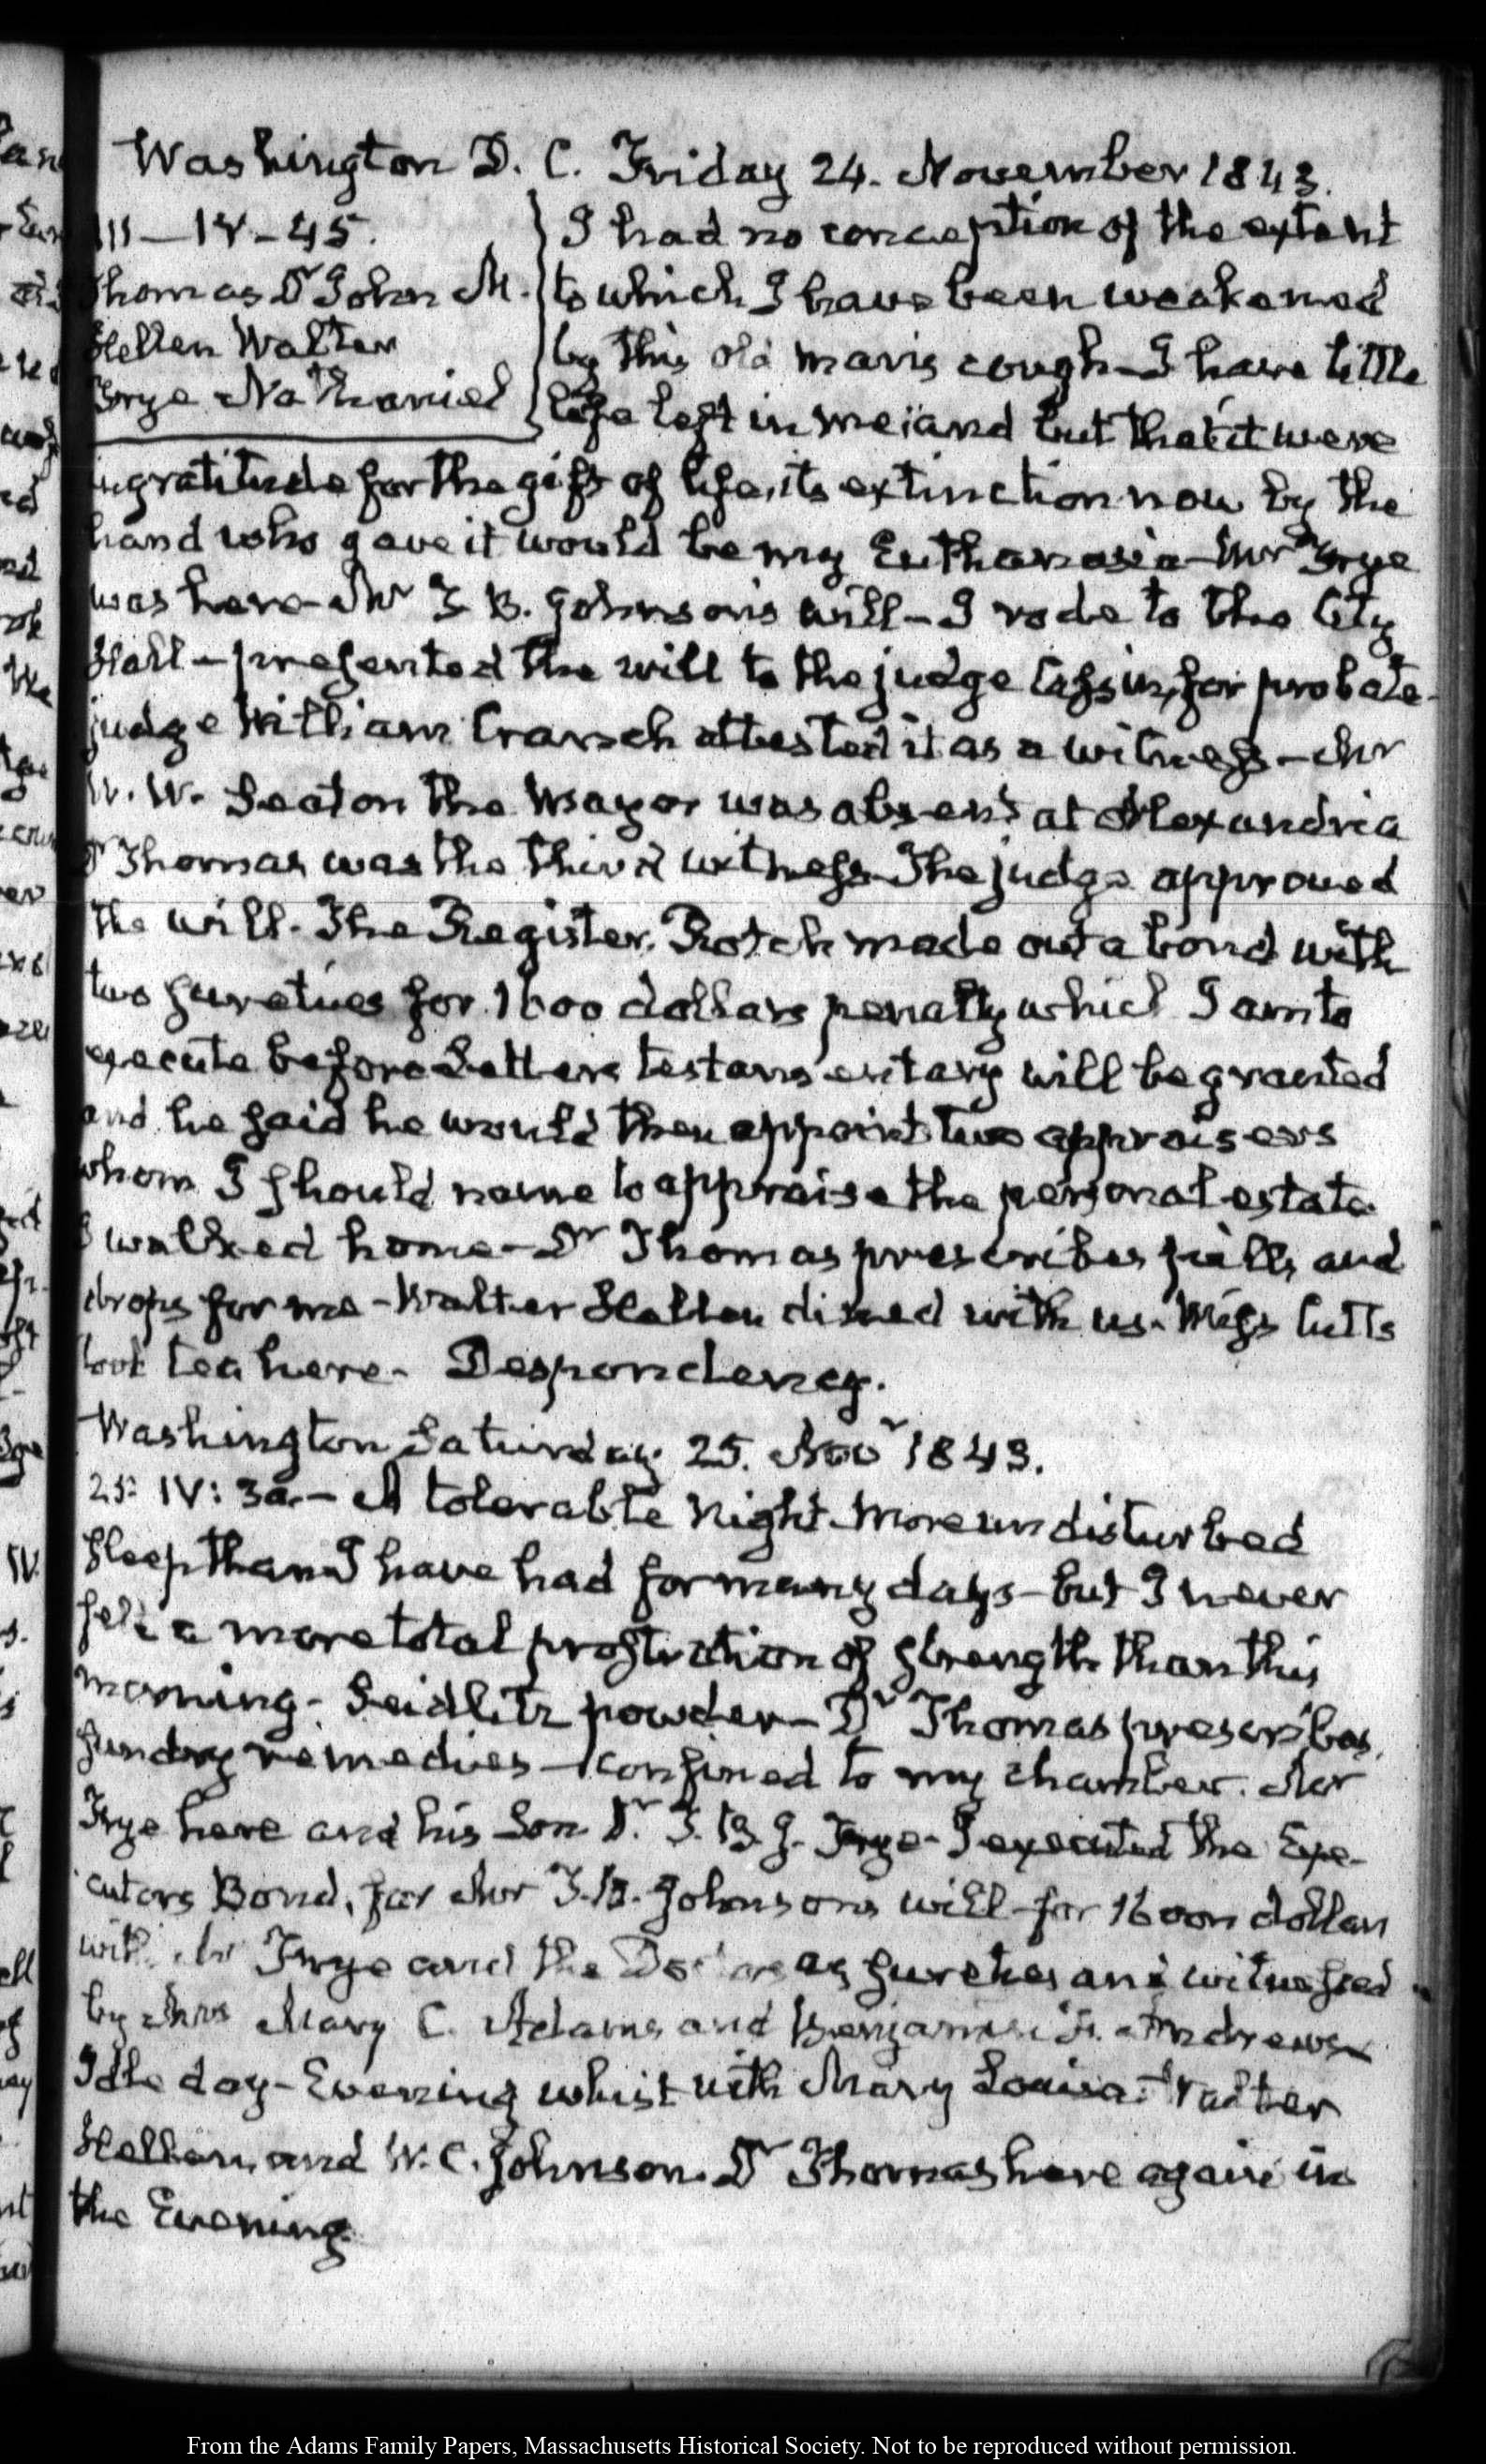 Washington D. C. Friday 24. November 1843.
III—IV-45.
Thomas Dr John M.
Hellen Walter
Frye Nathaniel
I had no conception of the extent
to which I have been weakened
by this old man's cough—I have little
life left in me; and but that it were
ingratitude for the gift of life, its extinction now by the
hand who gave it would be my Euthanasia—Mr Frye
was here—Mr T B. Johnson's will—I rode to the City
Hall—presented the will to the judge for probate—
judge William Cranch attested it as a witness—Mr
W. W. Seaton the Mayor was absent at Alexandria
Dr Thomas was the third witness—The judge approved
the will. The Register. made out a bond with
two sureties for 1600 dollars penalty which I am to
execute before Letters testamentary will be granted
and he said he would then appoint two appraisers
whom I should name to appraise the personal estate.
I walked home—Dr Thomas prescribes pills and
drops for me—Walter Hellen dined with us. Miss Cutts
took tea here. Despondency.
Washington Saturday 25. Novr 1843.
25. IV: 30.—A tolerable night. More undisturbed
sleep than I have had for many days—but I never
felt a more total prostration of strength than this
morning. Seidlitz powder—Dr Thomas prescribes
sundry remedies—confined to my chamber. Mr
Frye here and his Son Dr. T. B. J. Frye—I executed the Exe-
cutors Bond, for Mr T. B. Johnson's will—for 16000 dollars
with Mr Frye and the Doctor as sureties and witnessed
by Mrs Mary C. Adams and Benjamin Andrews
Idle day—Evening whist with Mary Louisa: Walter
Hellen, and W. C. Johnson. Dr Thomas here again in
the Evening.
From the Adams Family Papers, Massachusetts Historical Society. Not to be reproduced without permission.